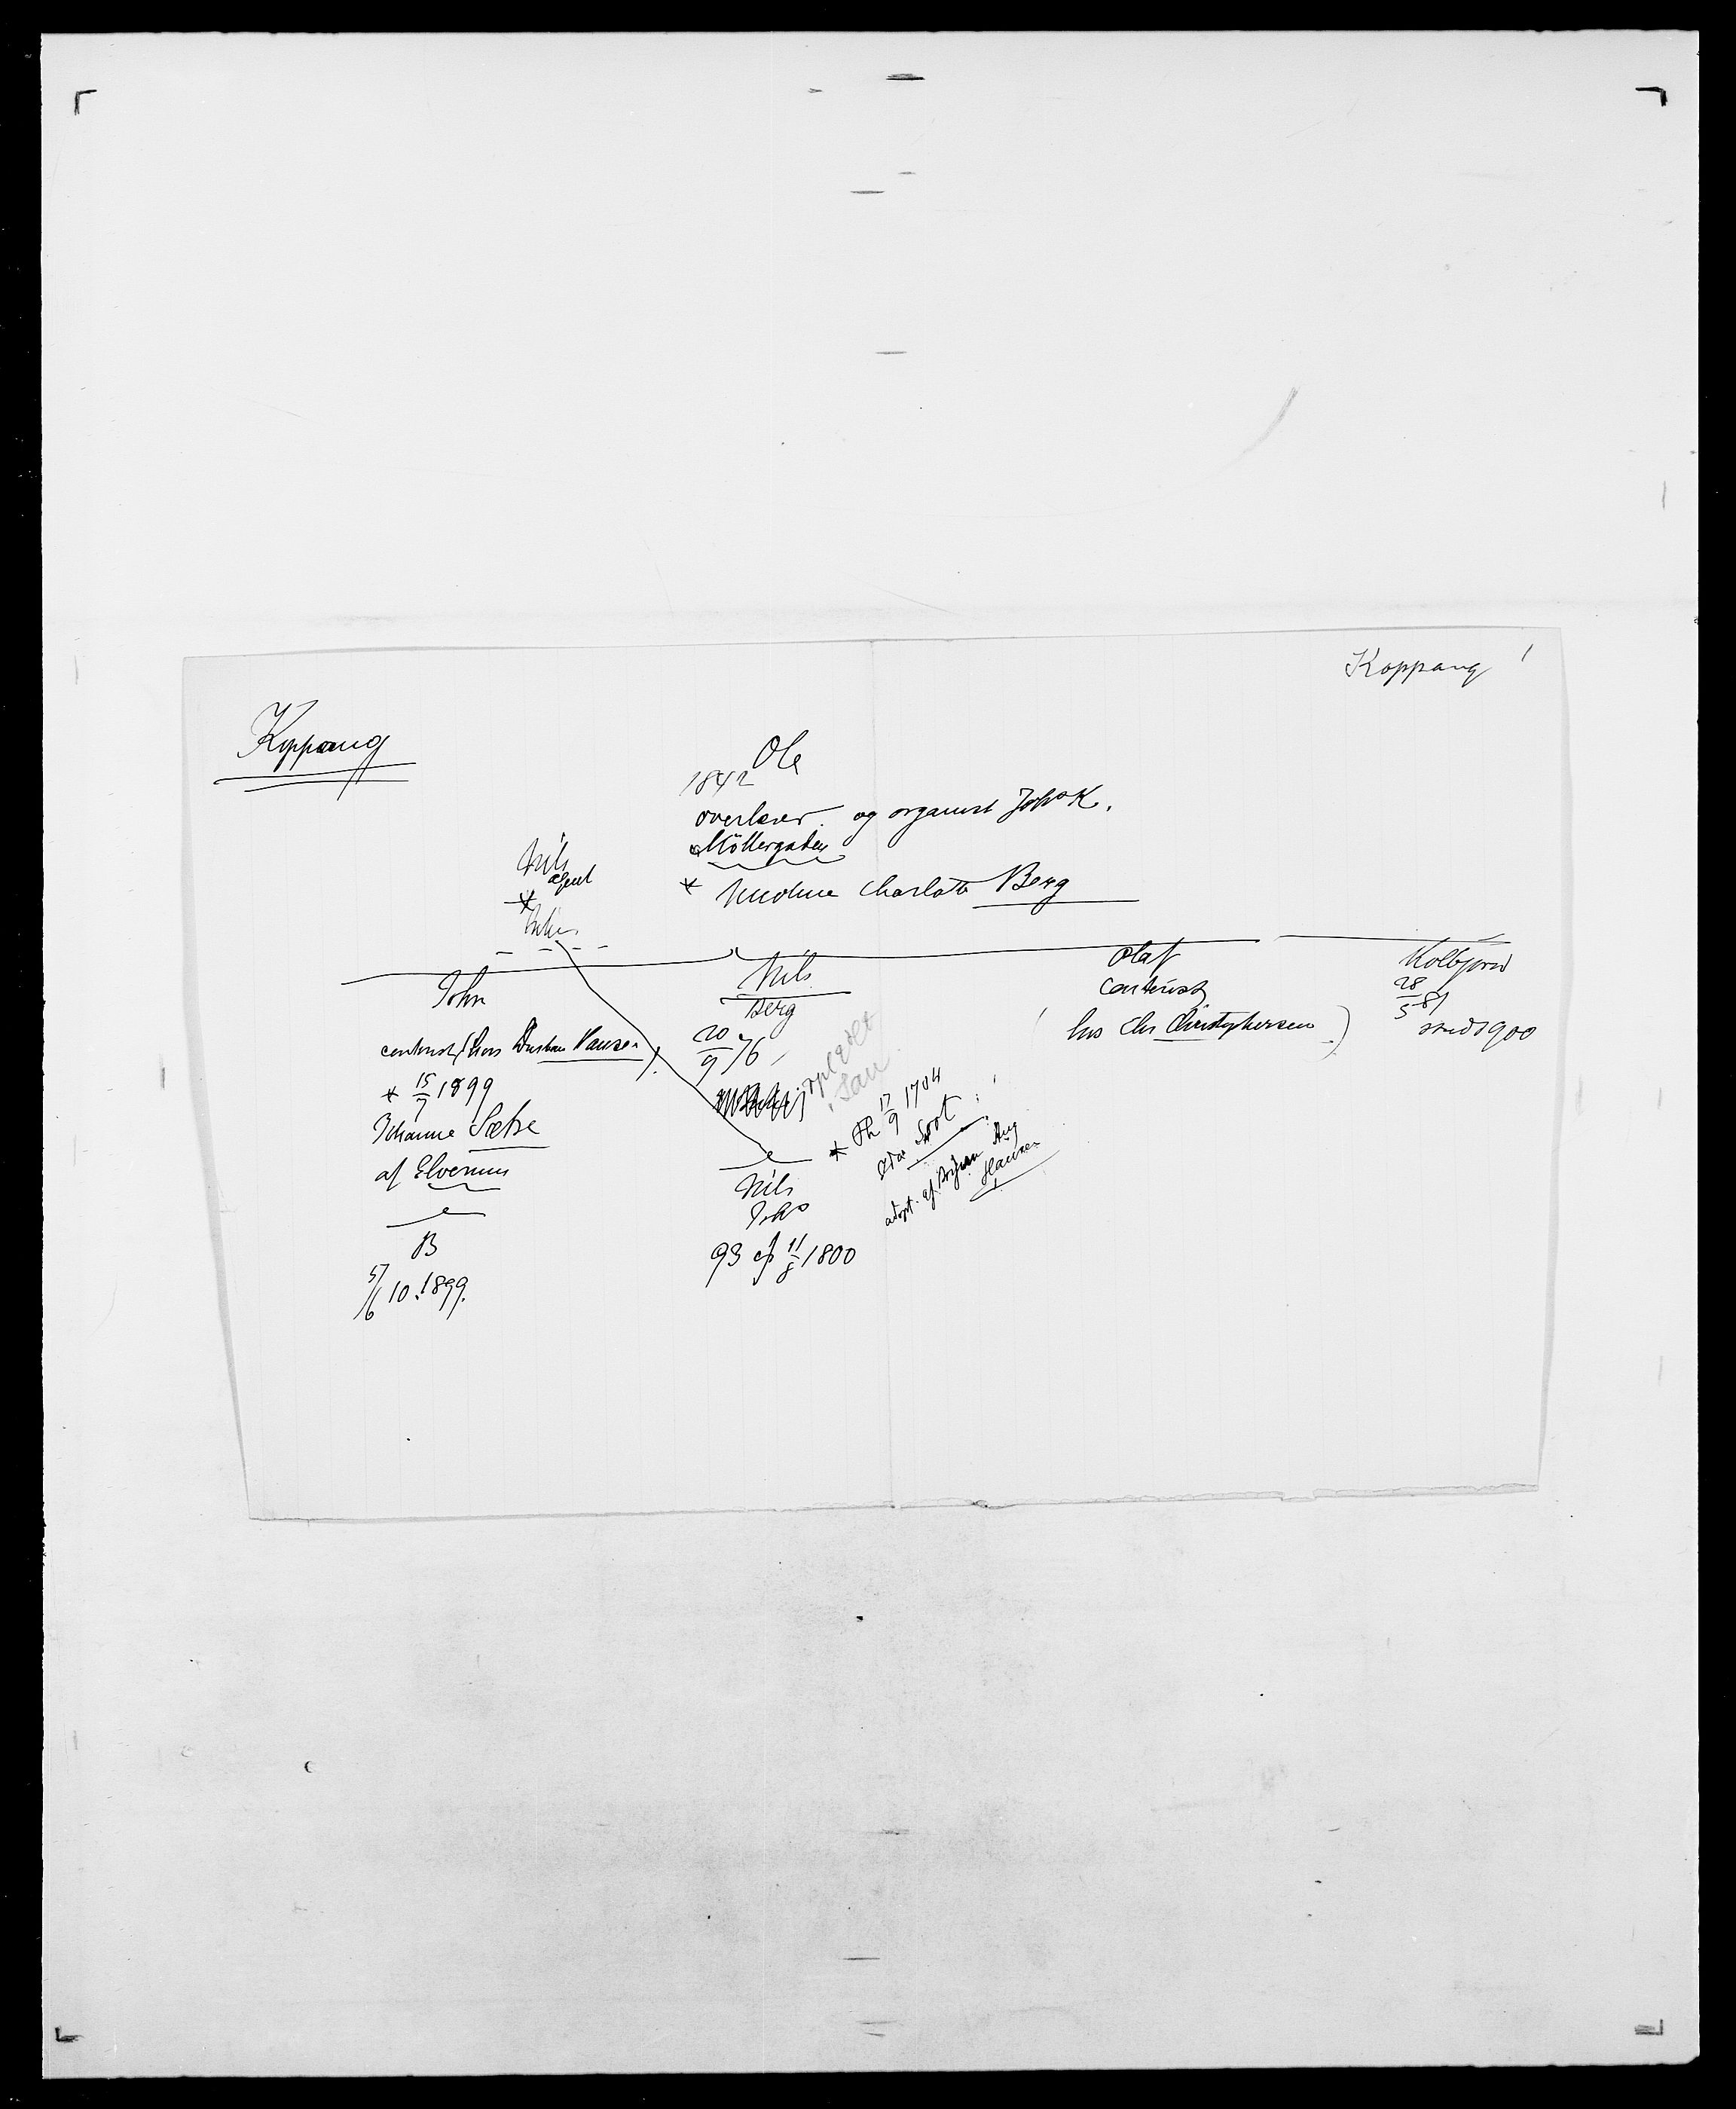 Koppang
Koppang
Ole
1842
overlærer og organist Joh° K.
Möllergaden
* Charlotte Berg
Nils
agent
*
John
contorist (hos Hansen)
* 15/7 1899
Johanne Sætre
af Elverum
B
5/6 10.1899.
Nils
Berg
20/9 76
opl
* Th 17/9 1704
Root
adopt. af Aug
Hansen
Nils
Joh°
93 cf 11/8 1800
Olaf
Contorist
(hos Chr Christophersen)
Kolbjørn
28/5 81
stud 1900